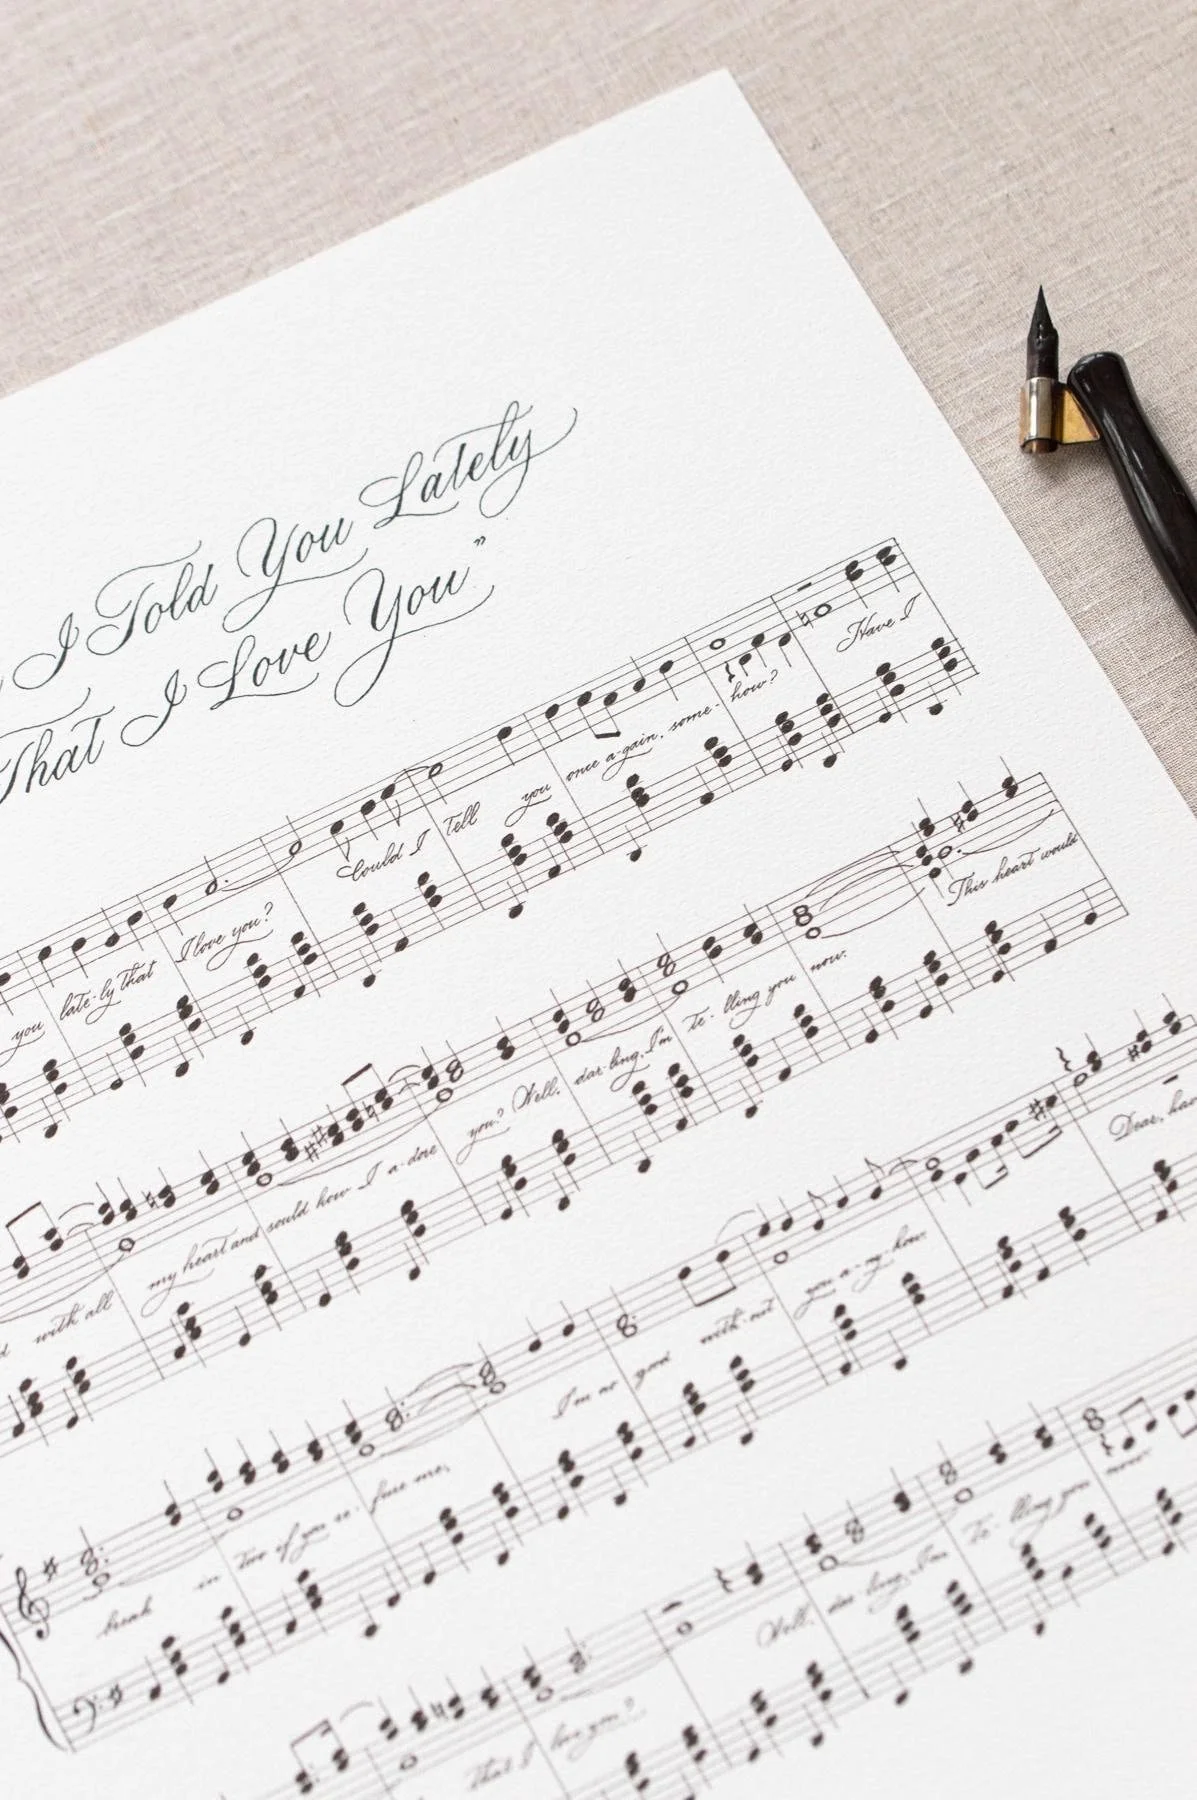 I Told You Lately
That I Love You"
you late-ly that I love you? Could I tell you once a-gain, some-how? Have I
with all my heart and sould how I a-dore you? Well, dar-ling, I'm te-lling you now.
This heart would
break in two if you re-fuse me, I'm no good with-out you a-ny-how.
Dear, hav
that I love you? Well, dar-ling, I'm te-lling you now.